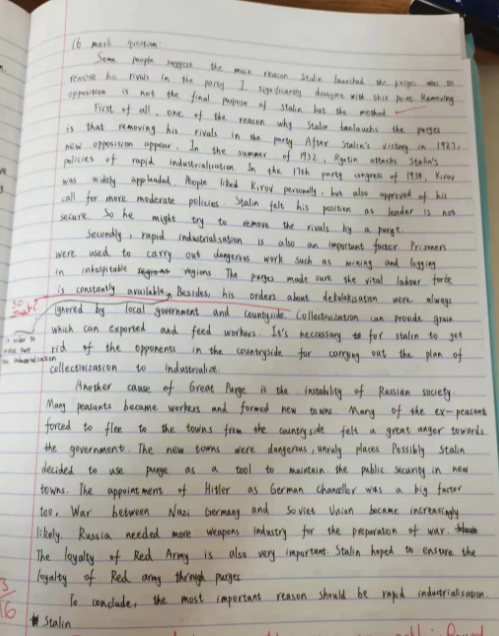 16 mark question:
Some people suggest the main reason Stalin launched the purges was to
remove his rivals in the party I significantly disagree with this point. Removing
opposition is not the final purpose of Stalin but the method.
First of all, one of the reason why Stalin the purges
is that removing his rivals in the party After Stalin's victory in 1927,
new opposition appear. In the summer of 1932, Ryutin attacks Stalin's
policies of rapid industrialisation In the 17th party congress of 1934, Kirov
was widely applauded. People liked Kirov personally, but also approved of his
call for more moderate policies. Stalin felt his position as leader is not
secure. So he might try to remove the rivals by a purge.
Secondly, rapid industrialisation is also an important factor Prisoners
were used to carry out dangerous work such as mining and logging
in inhospitable regions The purges made sure the vital labour force
is constantly available, Besides, his orders about dekulakisation were always
ignored by local government and countryside Collectivization can provide grain
which can exported and feed workers. It's neccessary for stalin to get
rid of the opponents in the countryside for carrying out the plan of
collectivization to industrialize
Another cause of Great Purge is the instability of Russian society
Many peasants became workers and formed new towns. Many of the ex-peasants
forced to flee to the towns from the countryside felt a great anger towards
the government. The new towns were dangerous, unruly places Possibly Stalin
decided to use purge as a tool to maintain the public security in new
towns. The appointment of Hitler as German chancellor was a big factor
too, War between Nazi Germany and Soviet Union became increasingly
likely. Russia needed more weapons industry for the preparation of war.
The loyalty of Red Army is also very important Stalin hoped to ensure the
loyalty of Red army through purges
To conclude, the most important reason should be rapid industrialisation.
Stalin
in order to
industrialisation
16